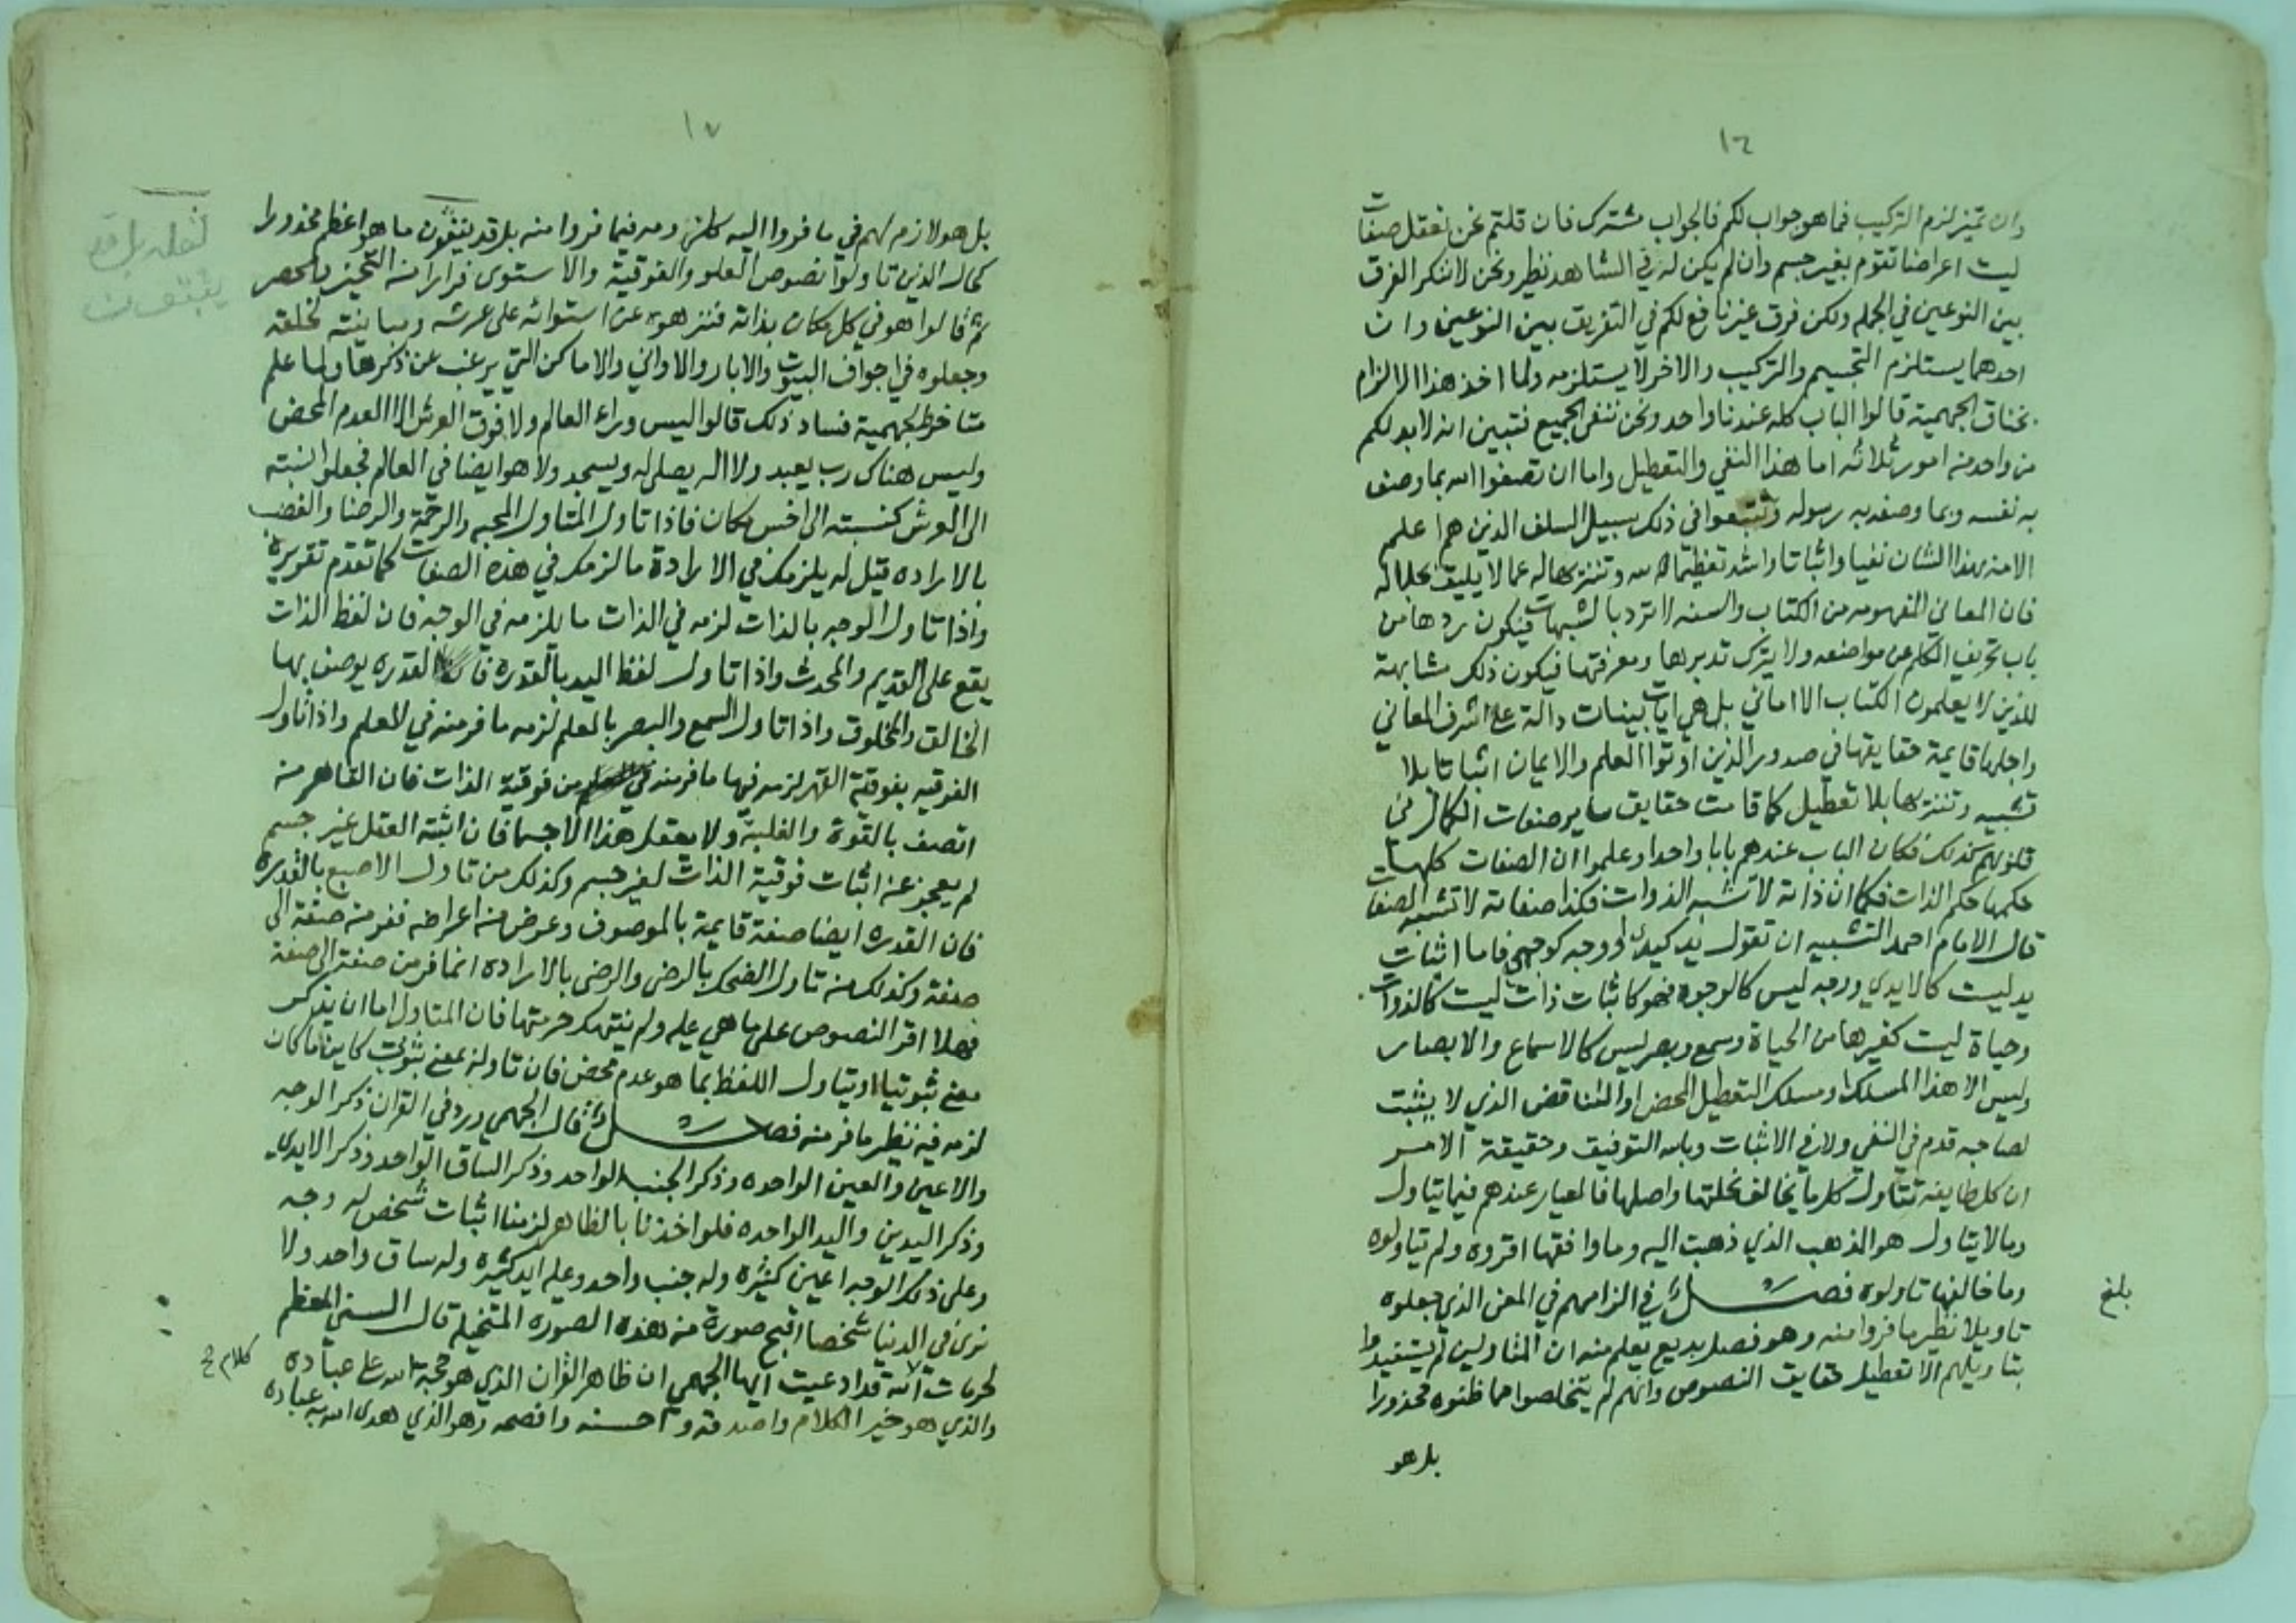 ١٦
وان تميز لزم التركيب فما هو جواب لكم فالجواب مشترك فان قلتم نحن نعقل صفات
ليست اعراضا تقوم بغير جسم وان لم يكن له في الشاهد نظير ونحن لا ننكر الفرق
بين النوعين في الجمله ولكن فرق غير نافع لكم في التفريق بين النوعين وان
احدهما يستلزم التجسيم والتركيب والاخر لا يستلزمه ولما اخذ هذا الالزام
بخناق الجهمية قالوا الباب كله عندنا واحد ونحن ننفي الجميع فتبين انه لا بد لكم
من واحد من امور ثلاثه اما هذا النفي والتعطيل واما ان تصفوا الله بما وصف
به نفسه وبما وصفه به رسوله وتتبعوا في ذلك سبيل السلف الذين هم اعلم
الامه بهذا الشان نفيا واثباتا واشد تعظيما لله وتنزيها له عما لا يليق بجلاله
فان المعاني المفهومه من الكتاب والسنه لا ترد بالشبهات فيكون ردها من
باب تحريف الكلم عن مواضعه ولا يترك تدبرها ومعرفتها فيكون ذلك مشابهة
للذين لا يعلمون الكتاب الا اماني بل هي ايات بينات دالة على اشرف المعاني
واجلها قايمة حقايقها في صدور الذين اوتوا العلم والايمان اثباتا بلا
تشبيه وتنزيها بلا تعطيل كما قامت حقايق ساير صفات الكمال في
قلوبهم كذلك فكان الباب عندهم بابا واحدا وعلموا ان الصفات كلها
حكمها حكم الذات فكما ان ذاته لا تشبه الذوات فكذا صفاته لا تشبه الصفات
قال الامام احمد التشبيه ان تقول يد كيدي او وجه كوجهي فاما اثبات
يد ليست كالايدي ووجه ليس كالوجوه فهو كاثبات ذات ليست كالذوات
وحياة ليست كغيرها من الحياة وسمع وبصر ليس كالاسماع والابصار
وليس الا هذا المسلك او مسلك التعطيل المحض او التناقض الذي لا يثبت
لصاحبه قدم في النفي ولا في الاثبات وبالله التوفيق وحقيقة الامر
ان كل طايفة تتاول كل ما يخالف نحلتها واصلها فالعيار عندهم فيما يتاول
وما لا يتاول هو المذهب الذي ذهبت اليه وما وافقها اقروه ولم يتاولوه
وما خالفها تاولوه فصل في الزامهم في المعنى الذي جعلوه
تاويلا نظير ما فروا منه وهو فصل بديع يعلم منه ان المتاولين لم يستفيدوا
بتاويلهم الا تعطيل حقايق النصوص وانهم لم يتخلصوا مما ظنوه محذورا
بل هو
بلغ
١٧
بل هو لازم لهم في ما فروا اليه كلزومه فيما فروا منه بل قد ينفون ما هو اعظم محذورا
كحال الذين تاولوا نصوص العلو والفوقية والاستوى فرارا من التحيز والحصر
ثم قالوا هو في كل مكان بذاته فنزهوه عن استوائه على عرشه ومباينته لخلقه
وجعلوه في اجواف البيوت والابار والاواني والاماكن التي يرغب عن ذكرها ولما علم
متاخرو الجهمية فساد ذلك قالوا ليس وراء العالم ولا فوق العرش الا العدم المحض
وليس هناك رب يعبد ولا اله يصلى له ويسجد ولا هو ايضا في العالم فجعلوا نسبته
الى العرش كنسبته الى اخس مكان فاذا تاول المتاول المحبه والرحمة والرضا والغضب
بالاراده قيل له يلزمك في الارادة ما لزمك في هذه الصفات كما تقدم تقريره
واذا تاول الوجه بالذات لزمه في الذات ما يلزمه في الوجه فان لفظ الذات
يقع على القديم والمحدث واذا تاول لفظ اليد بالقدره فان القدره يوصف بها
الخالق والمخلوق واذا تاول السمع والبصر بالعلم لزمه ما فر منه في العلم واذا تاول
الفوقيه بفوقية القهر لزمه فيها ما فر منه من فوقية الذات فان القاهر من
اتصف بالقوة والغلبة ولا يعقل هذا الا جسما فان اثبته العقل غير جسم
لم يعجز عن اثبات فوقية الذات لغير جسم وكذلك من تاول الاصبع بالقدره
فان القدره ايضا صفة قايمة بالموصوف وعرض من اعراضه ففر من صفة الى
صفة وكذلك من تاول الضحك بالرضى والرضى بالاراده انما فر من صفة الى صفة
فهلا اقر النصوص على ما هي عليه ولم ينتهك حرمتها فان المتاول اما ان يذكر
معنى ثبوتيا او يتاول اللفظ بما هو عدم محض فان تاوله بمعنى ثبوتي كاينا ما كان
لزمه فيه نظير ما فر منه فصل قال الجهمي ورد في القران ذكر الوجه
والاعين والعين الواحده وذكر الجنب الواحد وذكر الساق الواحد وذكر الايدي
وذكر اليدين واليد الواحده فلو اخذنا بالظاهر لزمنا اثبات شخص له وجه
وعلى ذلك الوجه اعين كثيره وله جنب واحد وعليه ايد كثيره وله ساق واحد ولا
نرى في الدنيا شخصا اقبح صورة من هذه الصورة المتخيله قال السني المعظم
لحرمات الله قد ادعيت ايها الجهمي ان ظاهر القران الذي هو حجة الله على عباده
والذي هو خير الكلام واصدقه واحسنه وافصحه وهو الذي هدى الله به عباده
لعله بل قد
كلام